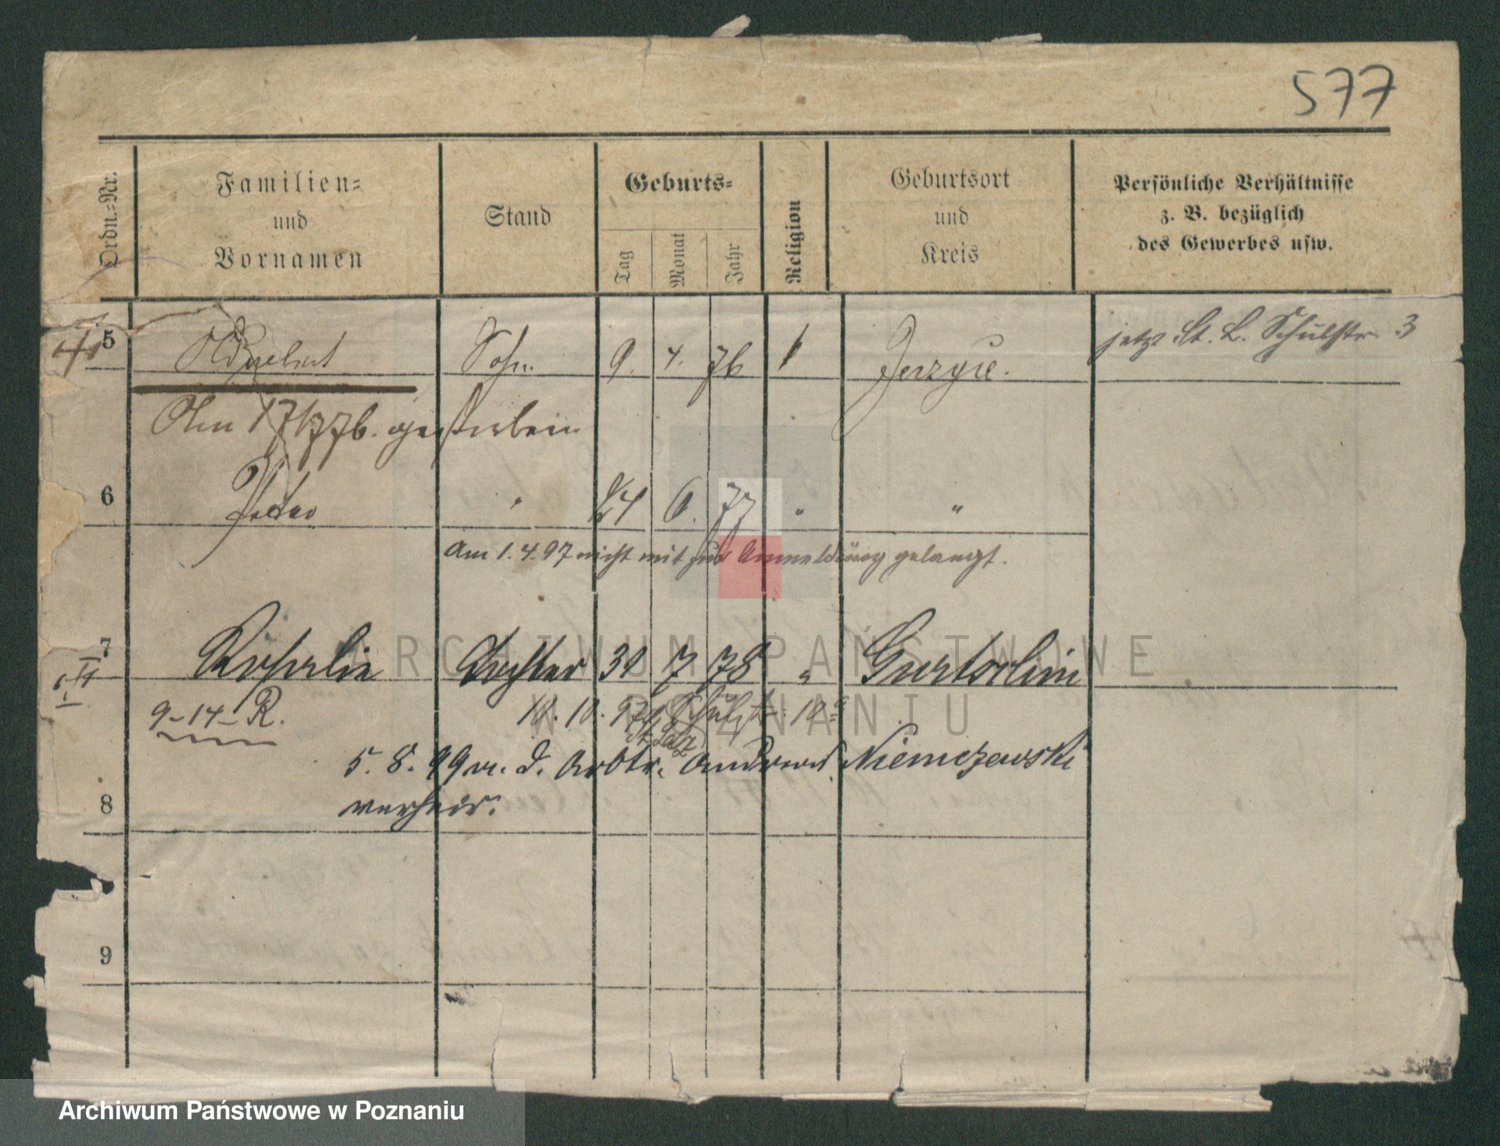 577
Ordn.-Nr.
Familien-
und
Vornamen
Stand
Geburts-
Tag
Monat
Jahr
Religion
Geburtsort
und
Kreis
Persönliche Verhältnisse
z. B. bezüglich
des Gewerbes usw.
5 Adalbert Sohn 9. 4. 76 Jerzyce. jetzt St. L. Schulstr. 3
Am gestorben
6 Peter " 24 6. 77 " "
Am 1. 4. 97 nicht mit zur Anmeldung gelangt.
7 Rosalie Tochter 31 7 78 "
9-14-R. 10. 10. 97
5. 8. 99 m. d. Arbtr. Andreas Niemczewski
verheir.
8
9
ARCHIWUM PAŃSTWOWE
W POZNANIU
Archiwum Państwowe w Poznaniu